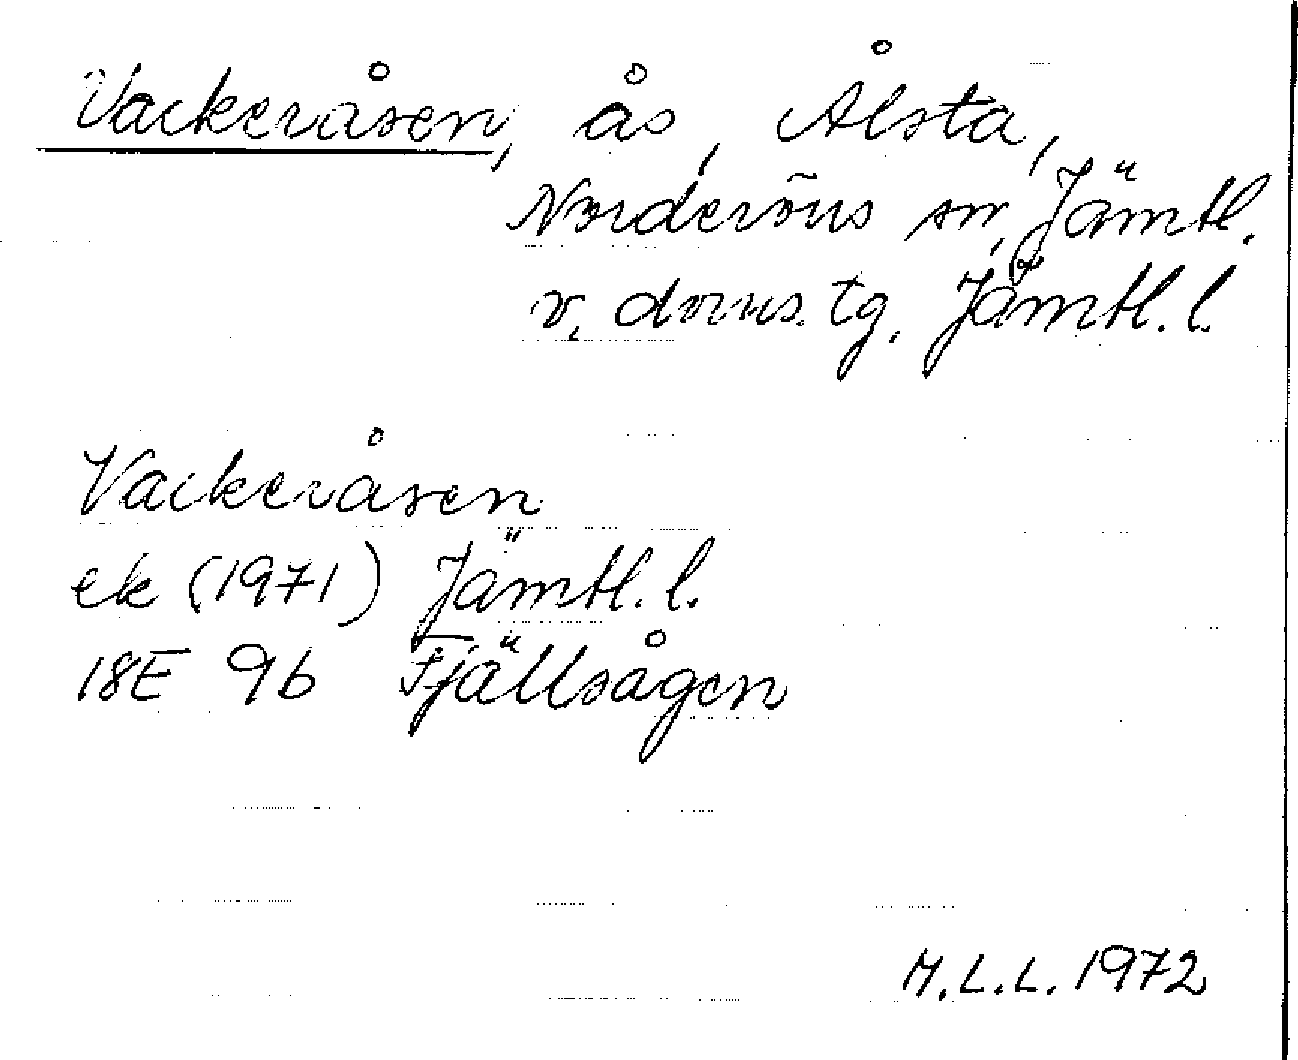 Vackeråsen, ås, Ålsta,
Norderöns sn, Jämtl.
v. doms. tg. Jämtl. l.
Vackeråsen
ek (1971) Jämtl. l.
18E 9b Fjällsågen
M.L.L. 1972